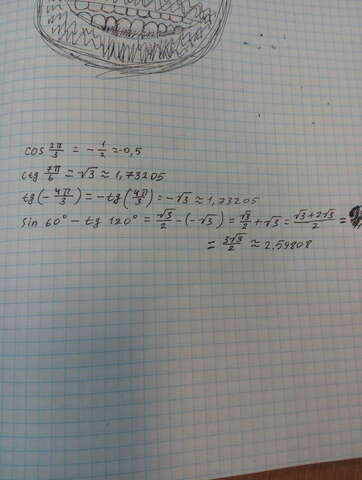 cos 2π/3 = -1/2 ≈ -0,5
ctg 7π/6 = √3 ≈ 1,73205
tg(-4π/3) = -tg(4π/3) = -√3 ≈ 1,73205
sin 60° - tg 120° = √3/2 - (-√3) = √3/2 + √3 = (√3+2√3)/2 =
= 3√3/2 ≈ 2,59808